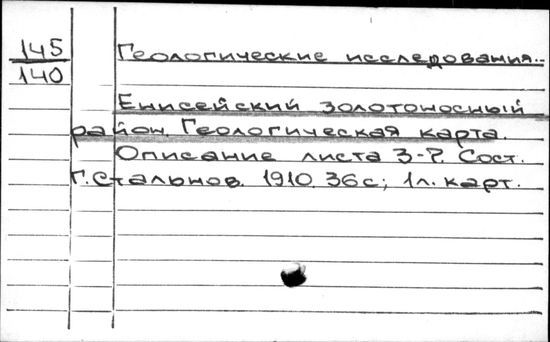 145
140
Геологические исследования...
Енисейский золотоносный
район. Геологическая карта.
Описание листа З-7. Сост.
Г. Стальнов. 1910. 36 с; 1 л. карт.